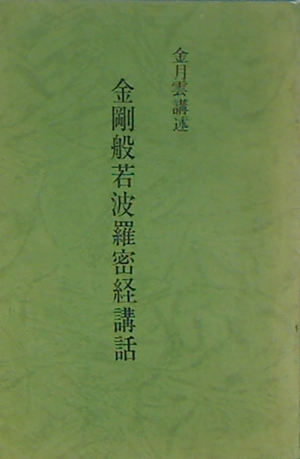 金月雲講述
金剛般若波羅密経講話